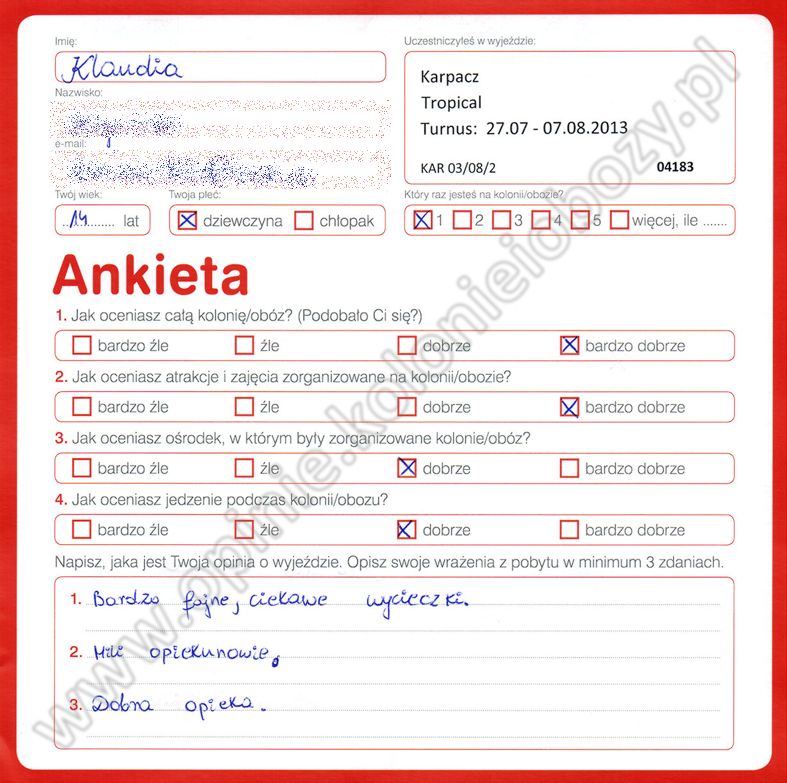 Imię:
Klaudia
Uczestniczyłeś w wyjeździe:
Karpacz
Tropical
Turnus: 27.07 - 07.08.2013
KAR 03/08/2 04183
Nazwisko:
e-mail:
Twój wiek:
14 lat
Twoja płeć:
dziewczyna chłopak
Który raz jesteś na kolonii/obozie?
1 2 3 4 5 więcej, ile .......
Ankieta
1. Jak oceniasz całą kolonię/obóz? (Podobało Ci się?)
bardzo źle źle dobrze bardzo dobrze
2. Jak oceniasz atrakcje i zajęcia zorganizowane na kolonii/obozie?
bardzo źle źle dobrze bardzo dobrze
3. Jak oceniasz ośrodek, w którym były zorganizowane kolonie/obóz?
bardzo źle źle dobrze bardzo dobrze
4. Jak oceniasz jedzenie podczas kolonii/obozu?
bardzo źle źle dobrze bardzo dobrze
Napisz, jaka jest Twoja opinia o wyjeździe. Opisz swoje wrażenia z pobytu w minimum 3 zdaniach.
1. Bardzo fajne, ciekawe wycieczki.
2. Mili opiekunowie.
3. Dobra opieka.
www.opinie.kolonieiobozy.pl